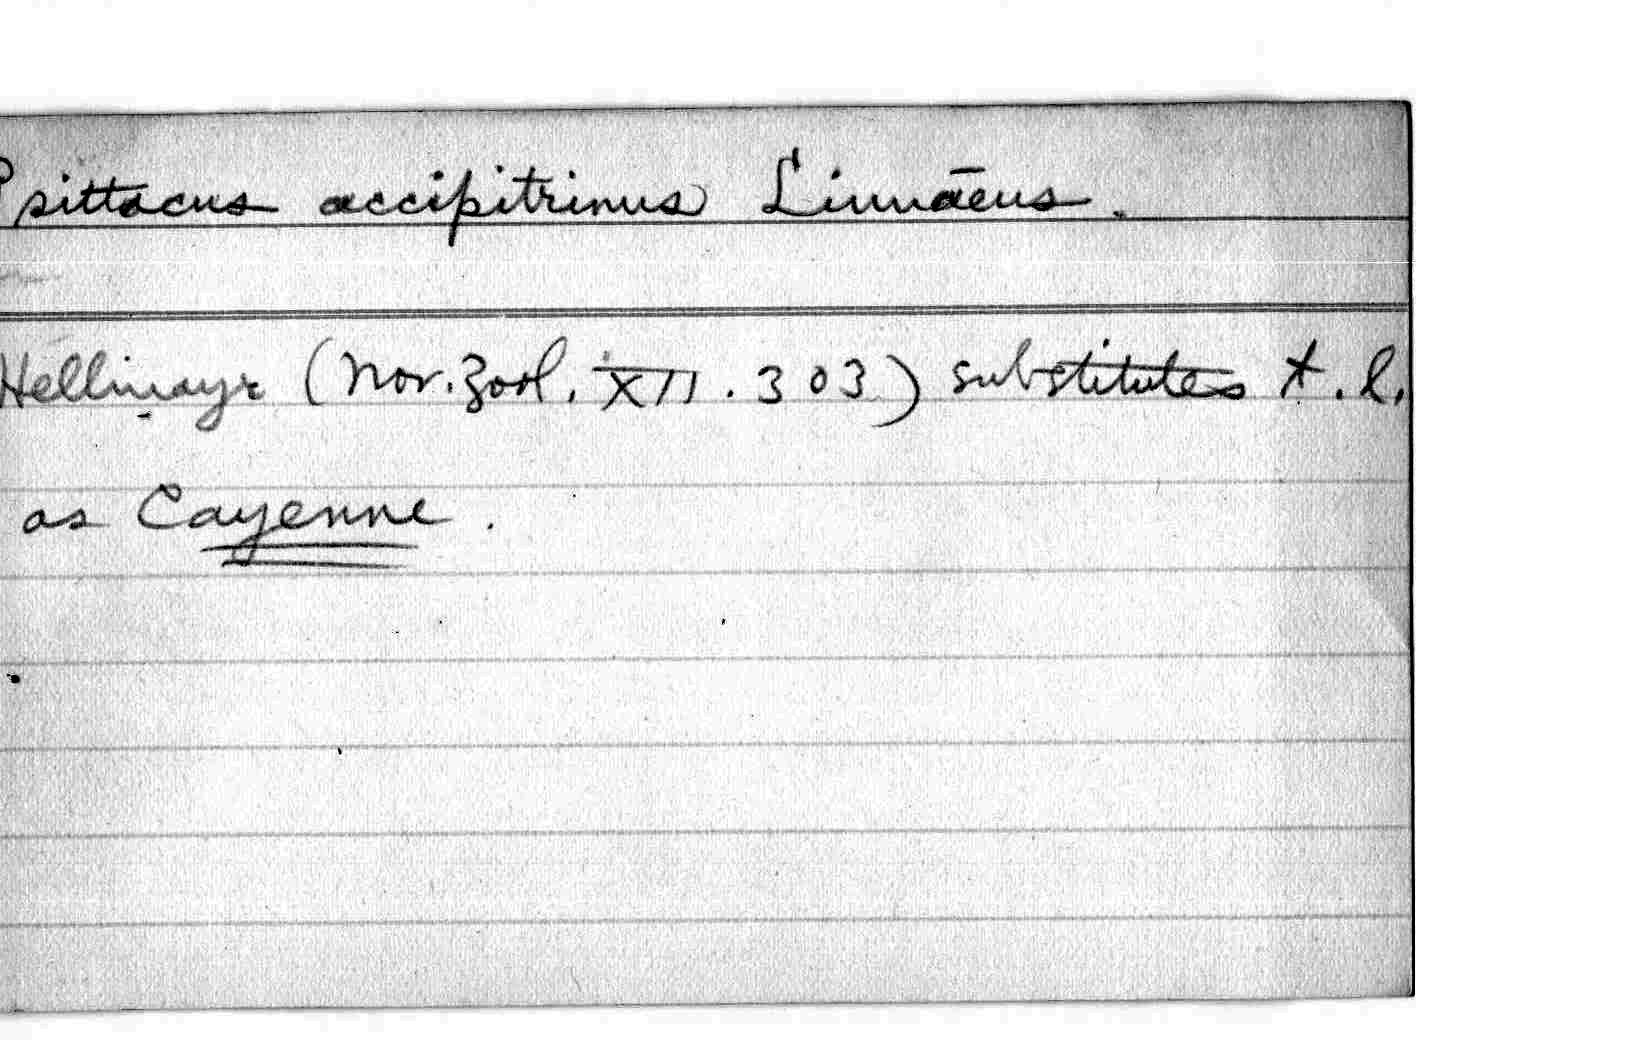 Psittacus accipitrinus Linnaeus.
Hellmayr (Nov. Zool. XII. 303) substitutes t. l.
as Cayenne.